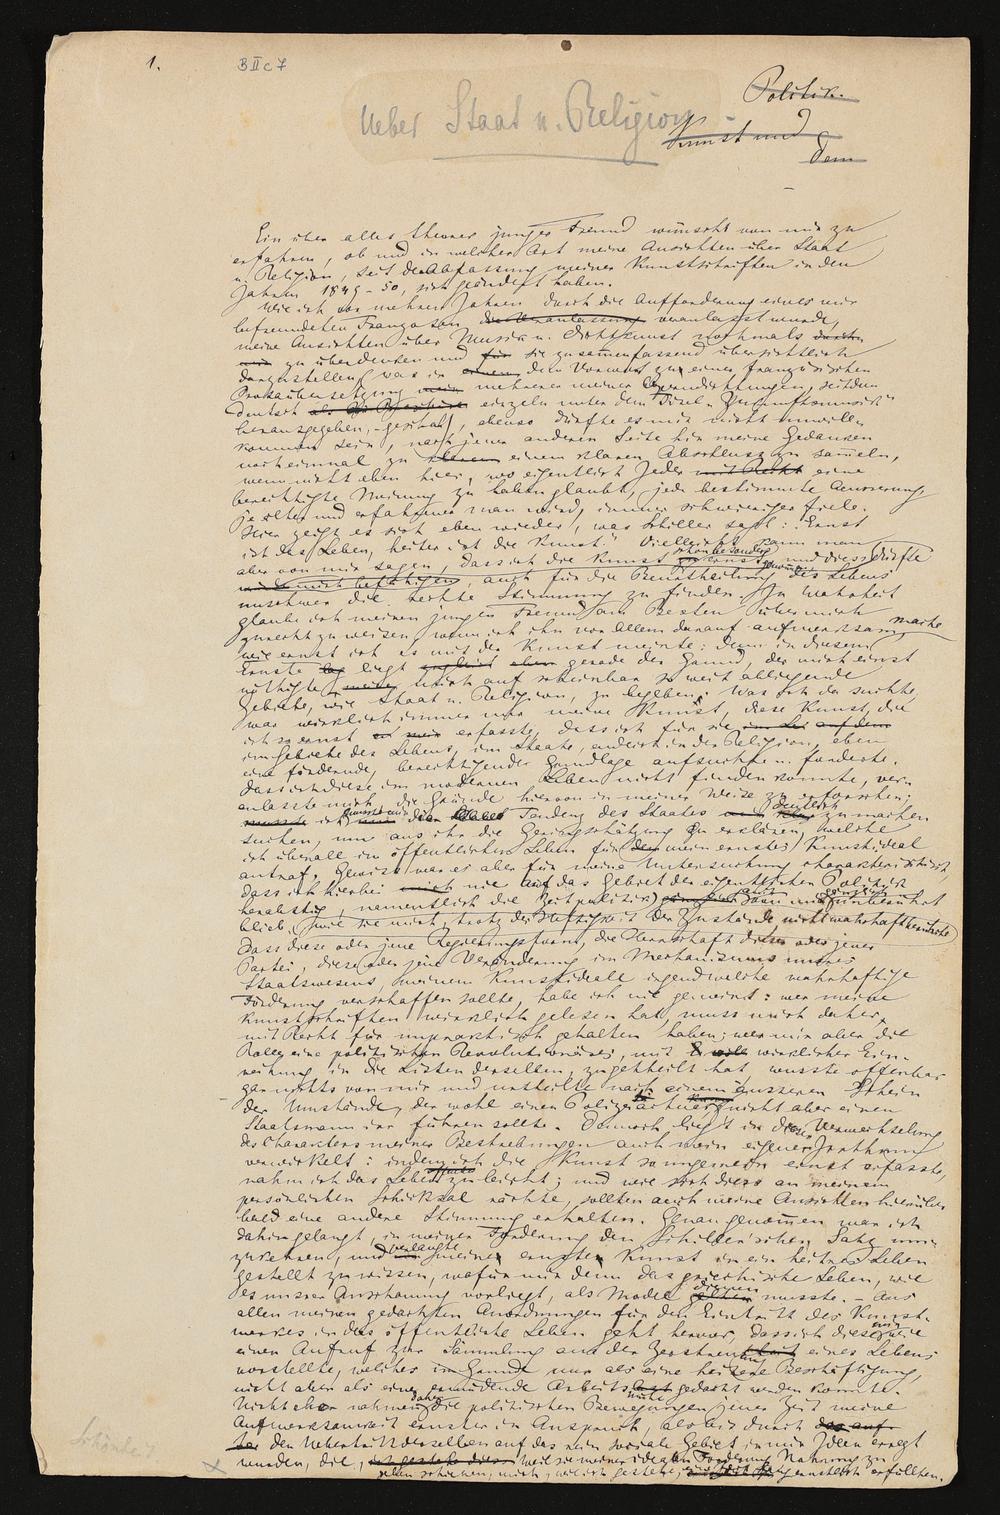 1.
B II c 7
Politik.
Ueber Staat u. Religion
Kunst und
dem
Ein über alles theurer junger Freund wünscht von mir zu
erfahren, ob und in welcher Art meine Ansichten über Staat
u. Religion, seit der Abfassung meiner Kunstschriften in den
Jahren 1849-50, sich geändert haben.
Wie ich vor mehren Jahren durch die Aufforderung eines mir
befreundeten Franzosen die Veranlassung veranlasst wurde,
meine Ansichten über Musik u. Dichtkunst nochmals
zu überdenken und für sie zusammenfassend übersichtlich
darzustellen (was in einem dem Vorwort zu einer französischen
Prosaübersetzung mehrerer meiner Operndichtungen, seitdem
deutsch einzeln unter dem Titel „Zukunftsmusik"
herausgegeben, - geschah), ebenso dürfte es mir nicht unwill-
kommen sein, nach jener anderen Seite hin meine Gedanken
noch einmal zu einem klaren Abschluss zu sammeln,
wenn nicht eben hier, wo eigentlich Jeder mit Recht eine
berechtigte Meinung zu haben glaubt, jede bestimmte Aeusserung,
je älter und erfahrener man wird, immer schwieriger fiele.
Hier zeigt es sich eben wieder, was Schiller sagt: „Ernst
ist das Leben, heiter ist die Kunst." Vielleicht kann man
schon besonders
aber von mir sagen, dass ich die Kunst so ernst und diess dürfte
mich befähigen, auch für die Beurtheilung des Lebens
unschwer die rechte Stimmung zu finden. In Wahrheit
glaube ich meinen jungen Freund am Besten über mich
zurecht zu weisen, wenn ich ihn vor Allem darauf aufmerksam mache
wie ernst ich es mit der Kunst meinte: denn in diesem
Ernste lag liegt eben gerade der Grund, der mich einst
nöthigte mich auf scheinbar so weit abliegende
Gebiete, wie Staat u. Religion, zu begeben. Was ich da suchte,
war wirklich immer nur meine Kunst, diese Kunst, die
ich so ernst erfasste, dass ich für sie auf dem
im Gebiete des Lebens, im Staate, endlich in der Religion, eben
eine fördernde, berechtigende Grundlage aufsuchte u. forderte.
Dass ich diese im modernen Leben nicht finden konnte, ver-
anlasste mich, die Gründe hiervon in meiner Weise zu erforschen;
deutlich
musste ich mir die Tendenz des Staates zu machen
suchen, um aus ihr die Geringschätzung zu erklären, welche
ich überall im öffentlichen Leben für der mein ernstes Kunstideal
antraf. Gewiss war es aber für meine Untersuchung charakteristisch,
dass ich hierbei nie auf das Gebiet der eigentlichen Politik
herabstieg, namentlich die Zeitpolitik, unberührt
blieb, wie sie mich, trotz der Heftigkeit der Zustände nicht wahrhaft berührte
Dass diese oder jene Regierungsform, die Herrschaft dieser oder jener
Partei, diese oder jene Veränderung im Mechanismus unsres
Staatswesens, meinem Kunstideale irgendwelche wahrhaftige
Förderung verschaffen sollte, habe ich nie gemeint: wer meine
Kunstschriften wirklich gelesen hat, muss mich daher
mit Recht für unpraktisch gehalten haben; wer mir aber die
Rolle eines politischen Revolutionärs, mit wirklicher Ein-
reihung in die Listen derselben, zugetheilt hat, wusste offenbar
gar nichts von mir und urtheilte nach einem äusseren Schein
der Umstände, der wohl einen Polizei nicht aber einen
Staatsmann irre führen sollte. Dennoch liegt in dieser Verwechselung
des Charakters meiner Bestrebungen auch mein eigener Irrthum
verwickelt: indem ich die Kunst so ungemein ernst erfasste,
nahm ich das Leben zu leicht; und wie sich diess an meinem
persönlichen Schicksal rächte, sollten auch meine Ansichten hierüber
bald eine andere Stimmung erhalten. Genau genommen war ich
dahin gelangt, in meiner Forderung den Schiller'schen Satz um-
verlangte
zukehren, und meine ernste Kunst in ein heitres Leben
gestellt zu wissen, wofür mir denn das griechische Leben, wie
dienen
es unsrer Anschauung vorliegt, als Model gelten musste. - Aus
allen meinen gedachten Anordnungen für den Eintritt des Kunst-
mir
werkes in das öffentliche Leben geht hervor, dass ich diese wie
einen Aufruf zur Sammlung aus der Zerstreuung eines Lebens
vorstellte, welches im Grunde nur als eine heitere Beschäftigung,
nicht aber als eine ermüdende Arbeits gedacht werden konnte.
daher
Nicht eher nahmen die politischen Bewegungen jener Zeit meine
Aufmerksamkeit ernster in Anspruch, als bis durch
den Uebertritt derselben auf das rein sociale Gebiet in mir Ideen erregt
wurden, die, weil sie meiner idealen Forderung Nahrung zu
geben schienen, mich, wie ich gestehe, ernstlich erfüllten.